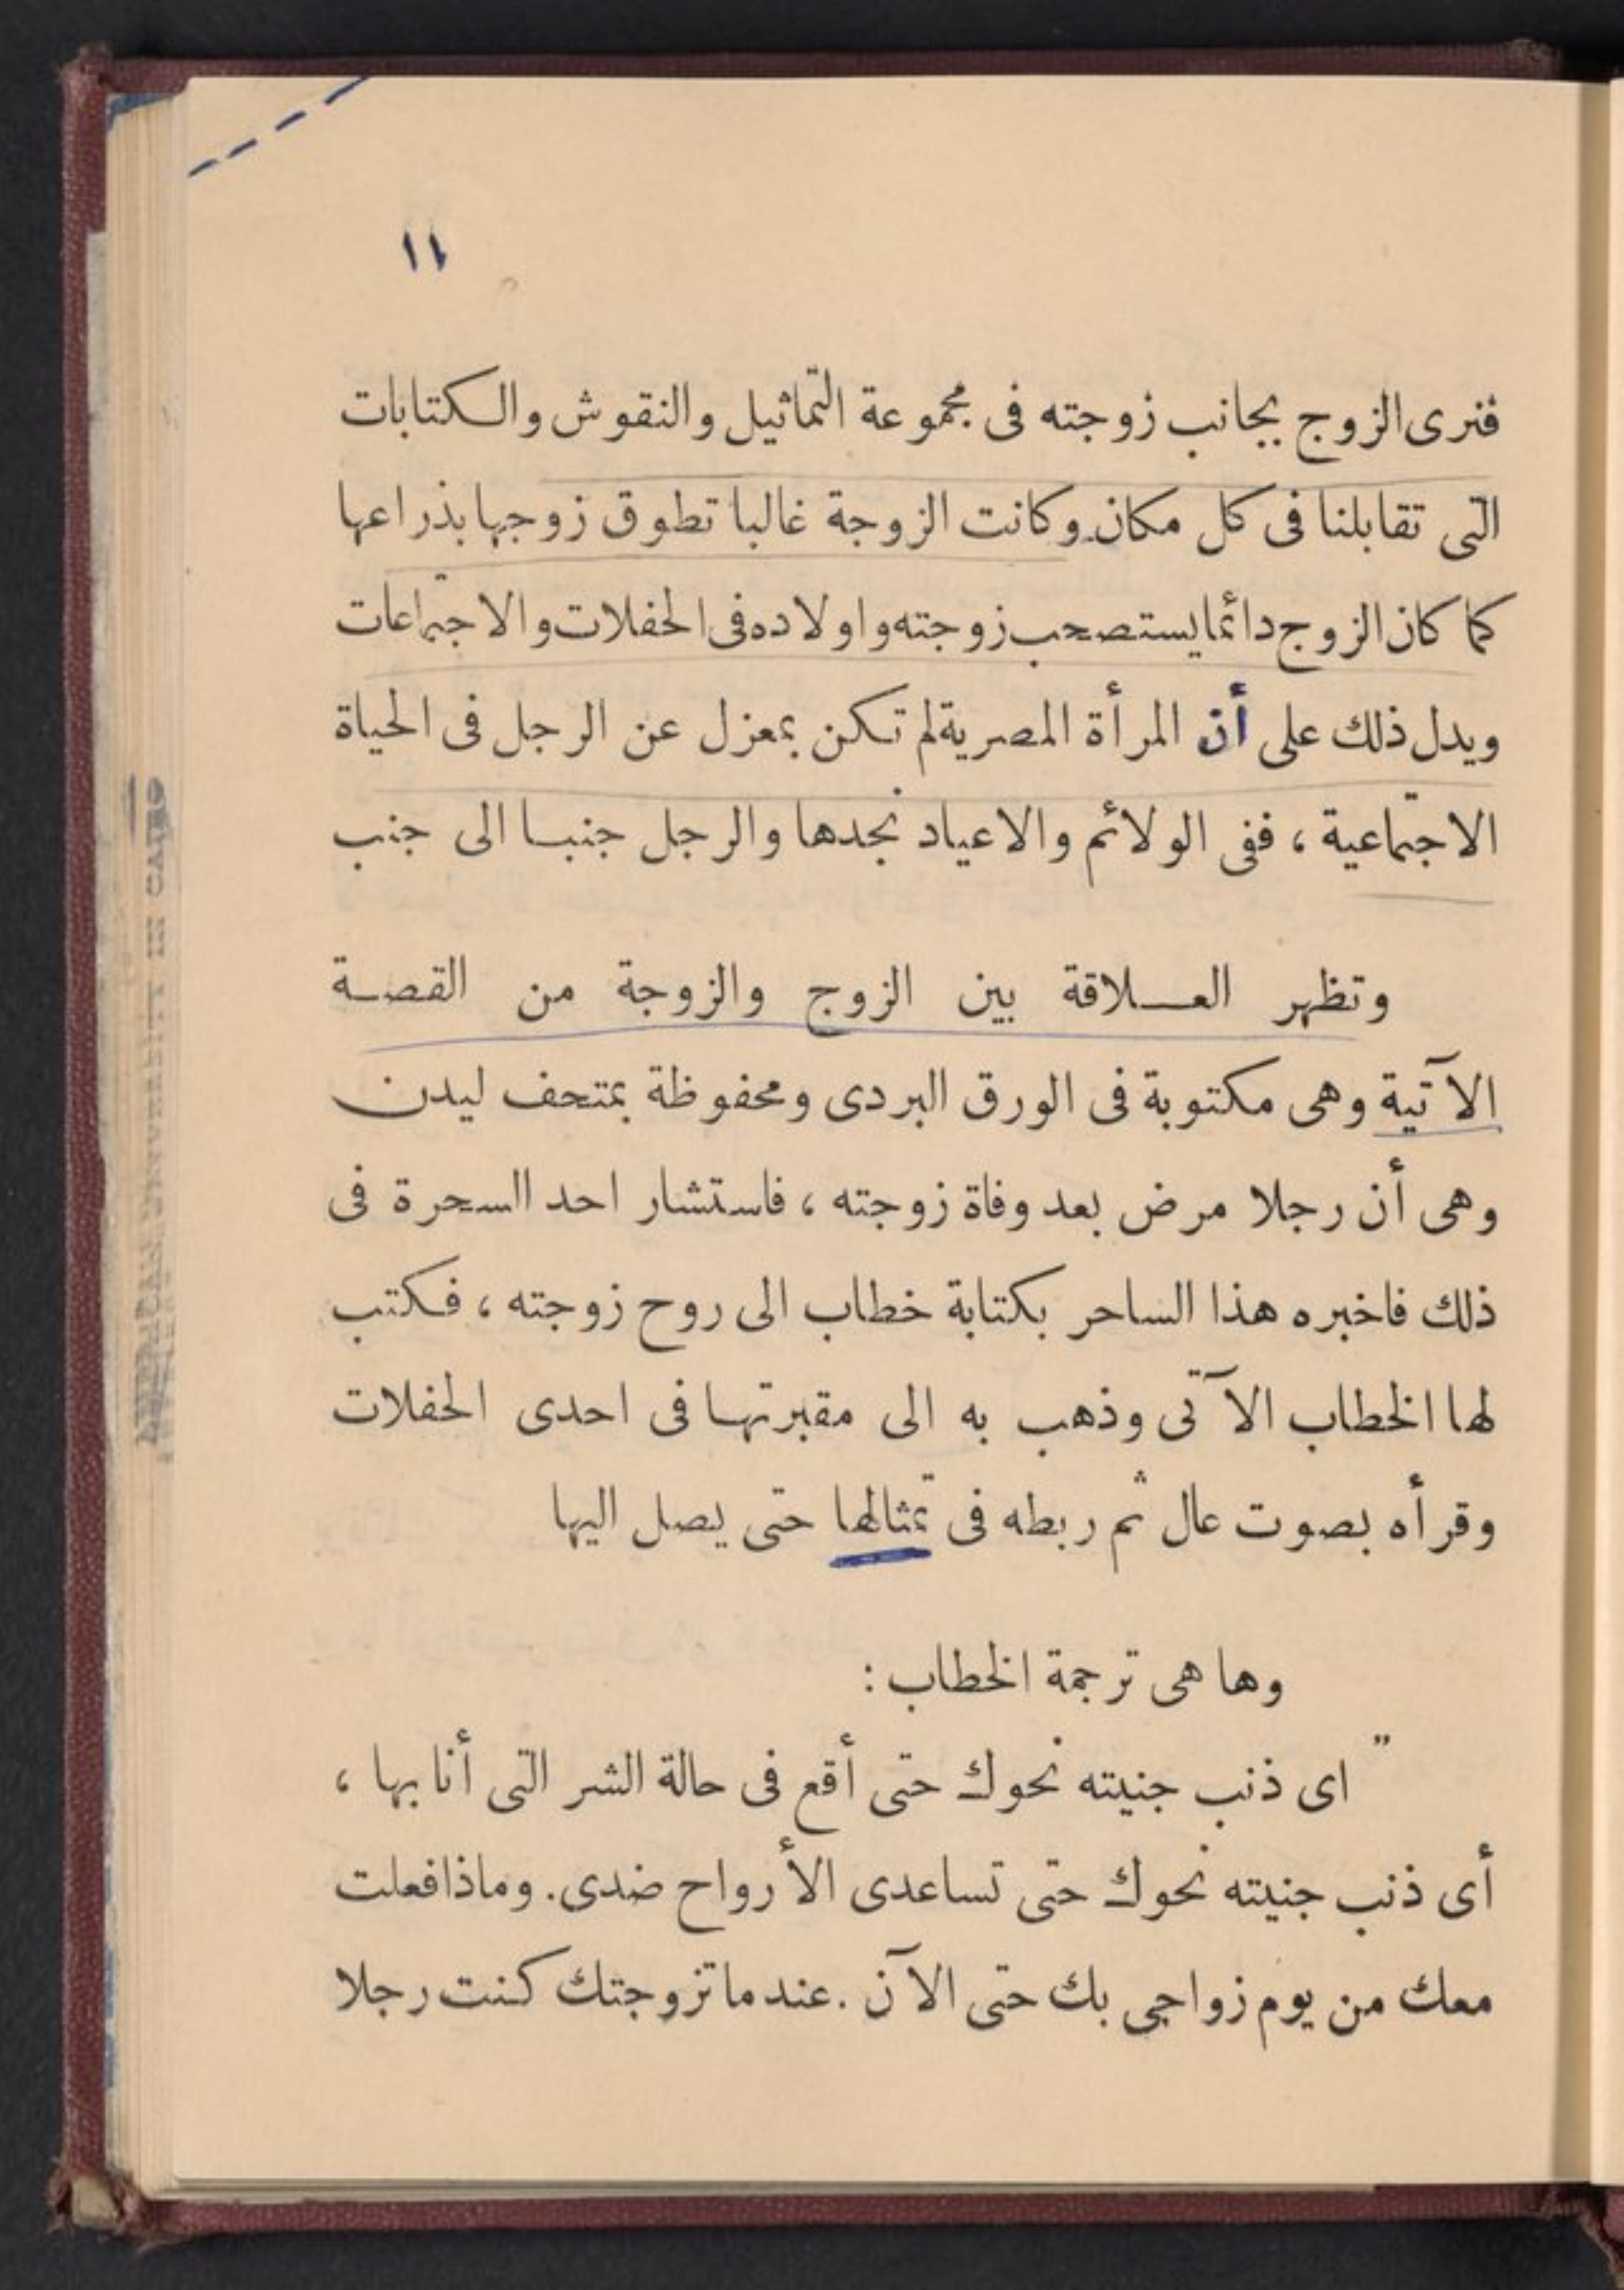 ١١
فنرى الزوج بجانب زوجته فى مجموعة التماثيل والنقوش والكتابات
التى تقابلنا فى كل مكان وكانت الزوجة غالبا تطوق زوجها بذراعها
كما كان الزوج دائما يستصحب زوجته واولاده فى الحفلات والاجتماعات
ويدل ذلك على أن المرأة المصرية لم تكن بمعزل عن الرجل فى الحياة
الاجتماعية ، ففى الولائم والاعياد نجدها والرجل جنبا الى جنب
وتظهر العلاقة بين الزوج والزوجة من القصة
الآتية وهى مكتوبة فى الورق البردى ومحفوظة بمتحف ليدن
وهى أن رجلا مرض بعد وفاة زوجته ، فاستشار احد السحرة فى
ذلك فاخبره هذا الساحر بكتابة خطاب الى روح زوجته ، فكتب
لها الخطاب الآتى وذهب به الى مقبرتها فى احدى الحفلات
وقرأه بصوت عال ثم ربطه فى تمثالها حتى يصل اليها
وها هى ترجمة الخطاب :
" اى ذنب جنيته نحوك حتى أقع فى حالة الشر التى أنا بها ،
أى ذنب جنيته نحوك حتى تساعدى الأرواح ضدى. وماذا فعلت
معك من يوم زواجى بك حتى الآن . عندما تزوجتك كنت رجلا